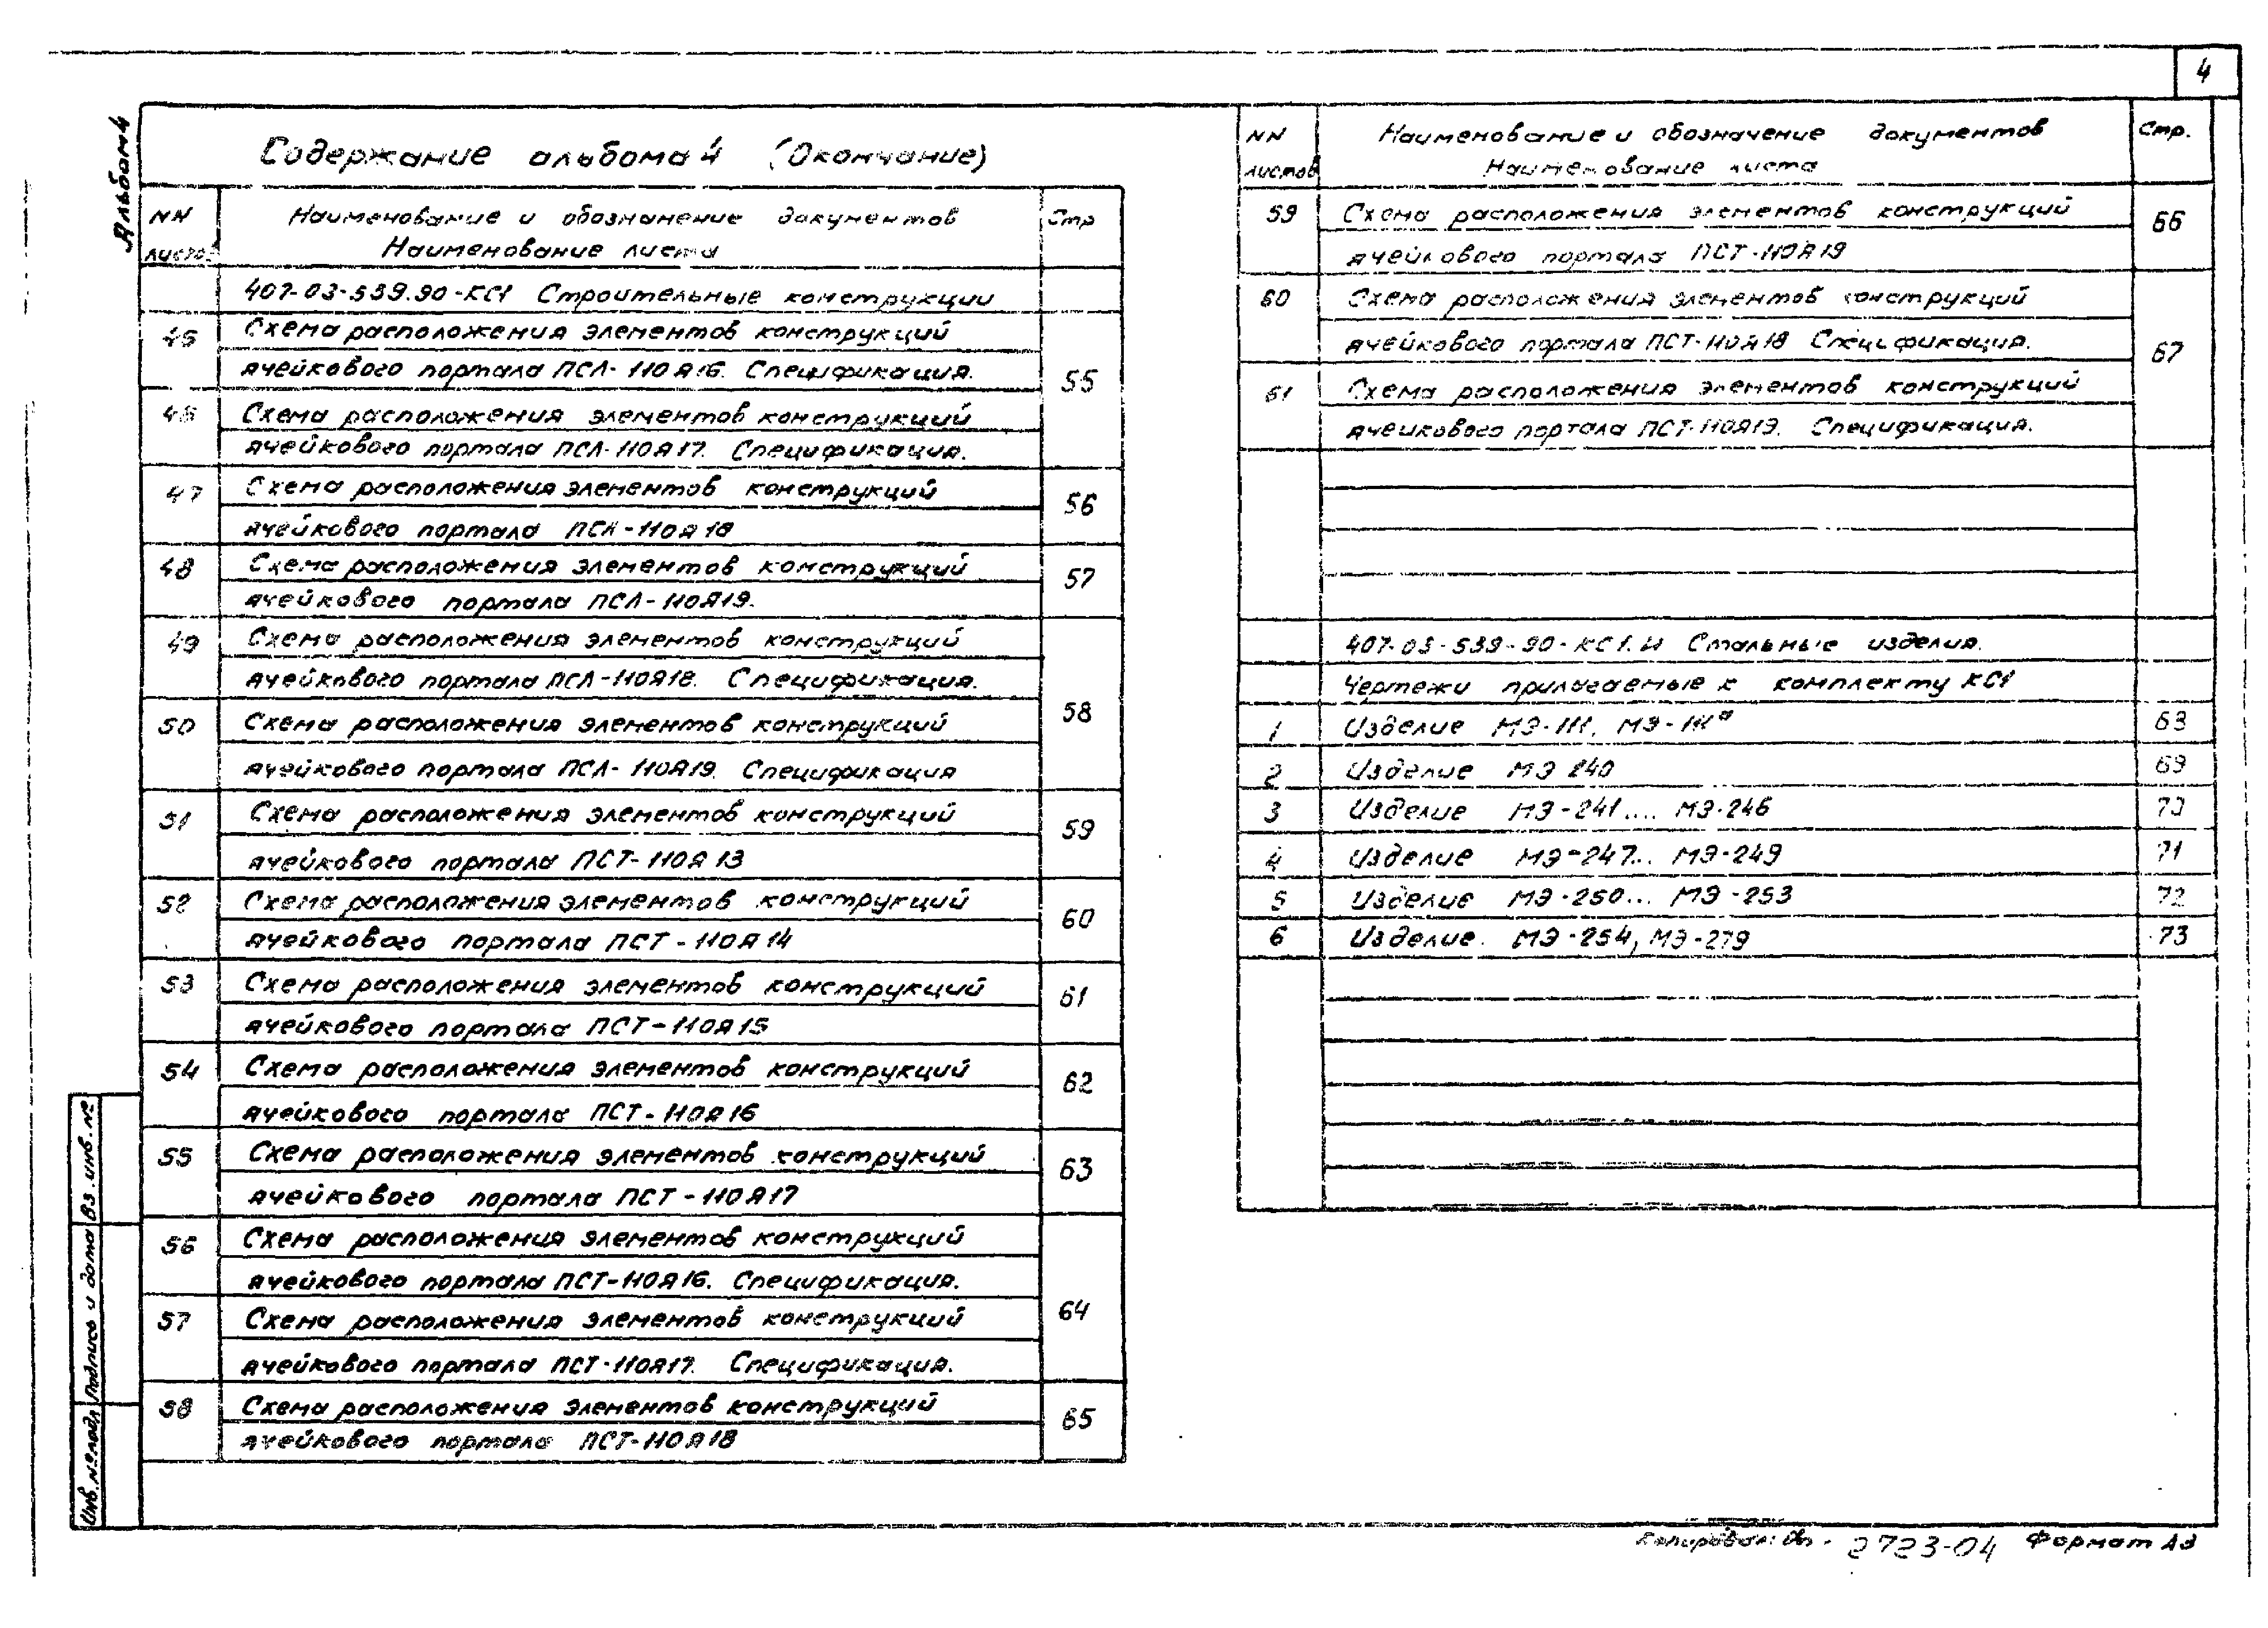 4
Альбом 4
Содержание альбома 4 (Окончание)
NN листов
Наименование и обозначение документов
Наименование листа
Стр
407-03-539.90-КС1 Строительные конструкции
45 Схема расположения элементов конструкций
ячейкового портала ПСЛ-110Я16. Спецификация.
55
46 Схема расположения элементов конструкций
ячейкового портала ПСЛ-110Я17. Спецификация.
47 Схема расположения элементов конструкций
ячейкового портала ПСЛ-110Я18
56
48 Схема расположения элементов конструкций
ячейкового портала ПСЛ-110Я19.
57
49 Схема расположения элементов конструкций
ячейкового портала ПСЛ-110Я18. Спецификация.
58
50 Схема расположения элементов конструкций
ячейкового портала ПСЛ-110Я19. Спецификация
51 Схема расположения элементов конструкций
ячейкового портала ПСТ-110Я13
59
52 Схема расположения элементов конструкций
ячейкового портала ПСТ-110Я14
60
53 Схема расположения элементов конструкций
ячейкового портала ПСТ-110Я15
61
54 Схема расположения элементов конструкций
ячейкового портала ПСТ-110Я16
62
55 Схема расположения элементов конструкций
ячейкового портала ПСТ-110Я17
63
56 Схема расположения элементов конструкций
ячейкового портала ПСТ-110Я16. Спецификация.
64
57 Схема расположения элементов конструкций
ячейкового портала ПСТ-110Я17. Спецификация.
58 Схема расположения элементов конструкций
ячейкового портала ПСТ-110Я18
65
NN листов
Наименование и обозначение документов
Наименование листа
Стр.
59 Схема расположения элементов конструкций
ячейкового портала ПСТ-110Я19
66
60 Схема расположения элементов конструкций
ячейкового портала ПСТ-110Я18 Спецификация.
67
61 Схема расположения элементов конструкций
ячейкового портала ПСТ-110Я19. Спецификация.
407-03-539-90-КС1.И Стальные изделия.
Чертежи прилагаемые к комплекту КС1
1 Изделие МЭ-111, МЭ-111а 68
2 Изделие МЭ 240 69
3 Изделие МЭ-241.... МЭ-246 70
4 Изделие МЭ-247... МЭ-249 71
5 Изделие МЭ-250... МЭ-253 72
6 Изделие. МЭ-254, МЭ-279 73
Вз. инв. №
Подпись и дата
Инв. № подл
Копировал: 2723-04 Формат А3